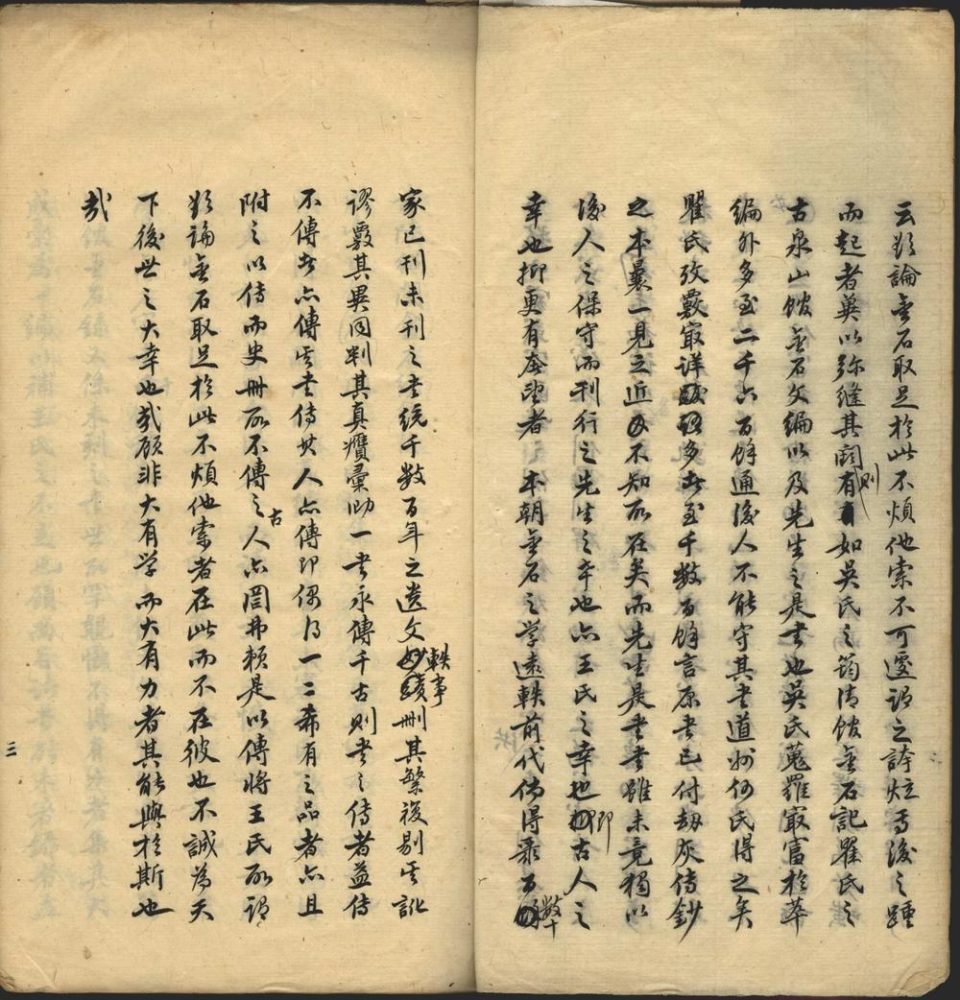 云欲論金石取足於此不煩他索不可遽謂之誇炫焉後之踵
而起者葉以弥縫其闕則有如吳氏之筠清館金石記瞿氏之
古泉山館金石文編以及先生之是書也吳氏蒐羅㝡富於萃
編外多至二千六百餘通後人不能守其書道州何氏得之矣
瞿氏攷覈㝡詳多者至千數百餘言原書已付劫灰傳鈔
之本曩一見之近不知所在矣而先生是書雖未竟猶以
後人之保守而刊行之先生之幸也亦王氏之幸也即古人之
幸也抑更有奢望者本朝金石之學遠軼前代倘得聚數十百
家已刊未刊之書統千數百年之遺文軼事刪其繁複剔其訛
謬覈其異同判其真贗彙励一書永傳千古則書之傳者益傳
不傳者亦傳其書傳其人亦傳即偶得一二希有之品者亦且
附之以傳而史冊所不傳之古人亦罔弗賴是以傳將王氏所謂
欲論金石取足於此不煩他索者在此而不在彼也不誠為天
下後世之大幸也哉顧非大有学而大有力者其能與於斯也
哉
三